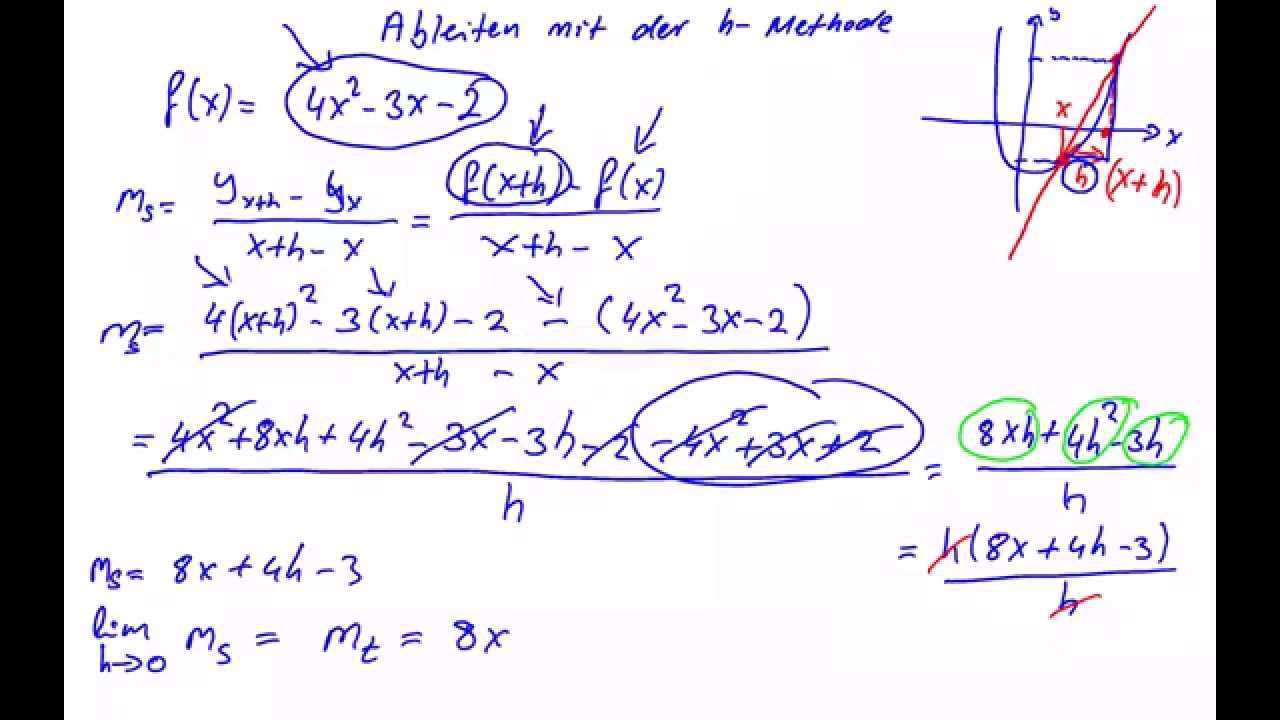 Ableiten mit der h-Methode
f(x) = 4x² - 3x - 2
mₛ = (yₓ₊ₕ - yₓ)/(x+h - x) = (f(x+h) - f(x))/(x+h - x)
y
x
x
h
(x+h)
mₛ = (4(x+h)² - 3(x+h) - 2 - (4x² - 3x - 2))/(x+h - x)
= (4x² + 8xh + 4h² - 3x - 3h - 2 - 4x² + 3x + 2)/h = (8xh + 4h² - 3h)/h
= h(8x + 4h - 3)/h
mₛ = 8x + 4h - 3
lim h→0 mₛ = mₜ = 8x